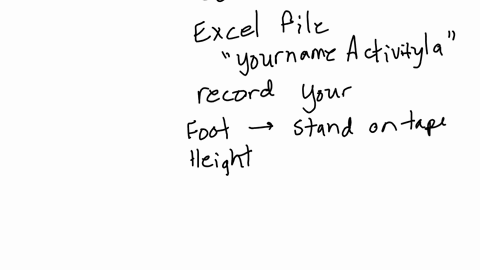 Excel file
"yourname Activity1a"
record your
Foot → stand on tape
Height